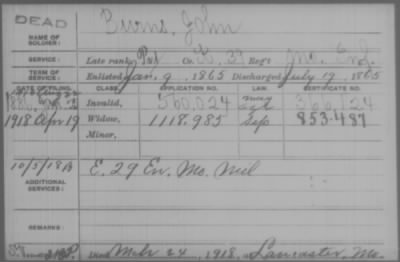 DEAD
Burns, John
NAME OF SOLDIER:
SERVICE: Late rank, Pvt Co. K, 3" Reg't Cav.
TERM OF SERVICE: Enlisted Jan. 9, 1865 Discharged July 19, 1865
DATE OF FILING. CLASS. APPLICATION NO. LAW. CERTIFICATE NO.
1886, Invalid, 560,024 366,124
1918 Apr 19 Widow, 1118,985 Sep 853-487
Minor,
10/5/18 A E. 29 En. Mo. Mil
ADDITIONAL SERVICES:
REMARKS:
Died Mch 24, 1918, at Lancaster, Mo.